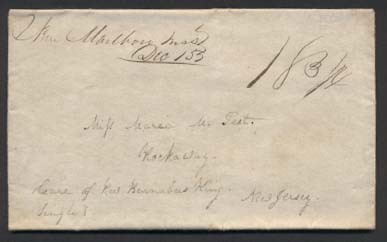 New Marlboro Mss
Dec 15
18 3/4
Miss Maria M.
Rockaway.
Care of Rev Barnabas King. New Jersey.
Single